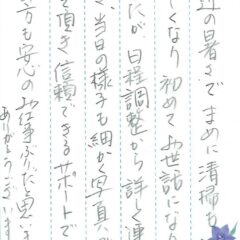 の暑さで まめに清掃も
しくなり 初めてお世話にな
たが 日程調整から詳しく連
、当日の様子も細かく写真
を頂き 信頼できるサポートで
方も安心のお仕事ぶりだと思い
ありがとうございます